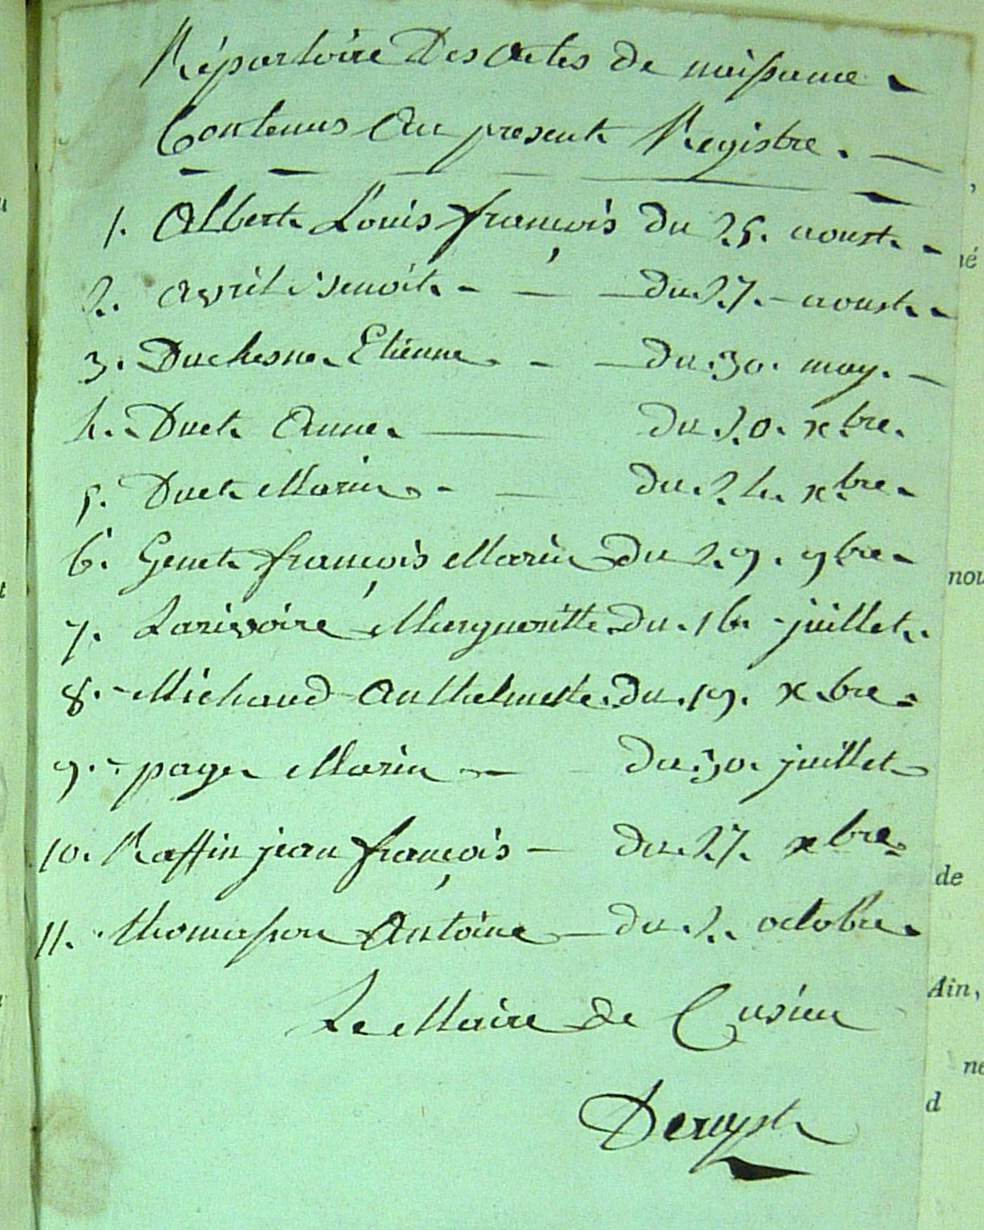 Répertoire Des Actes de naissance
Contenus Au present Registre.
1. Albert Louis françois du 25. aoust
2. avril Benoit du 27. aoust
3. Duchesne Etienne du 30. may.
4. Duet Anne du 20. xbre.
5. Duet Marie du 24. xbre
6. Genet françois Marie du 29. 9bre
7. Larivoire Margueritte du 16 juillet.
8. Michaud Anthelmette du 19. xbre
9. page Marie du 30. juillet
10. Raffin jean françois du 27. xbre
11. thomasson Antoine du 2. octobre
Le Maire de Cusieu
nou
de
Ain,
d